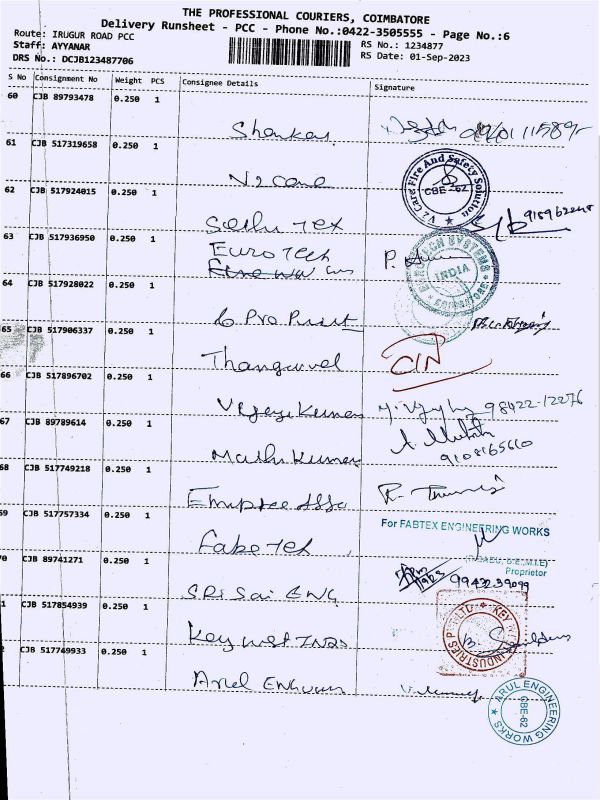 THE PROFESSIONAL COURIERS, COIMBATORE
Delivery Runsheet - PCC - Phone No.:0422-3505555 - Page No.:6
Route: IRUGUR ROAD PCC
Staff: AYYANAR
DRS No.: DCJB123487706
RS No.: 1234877
RS Date: 01-Sep-2023
S No Consignment No Weight PCS Consignee Details Signature
60 CJB 89793478 0.250 1
Shankar
61 CJB 517319658 0.250 1
V2 Care
V2 Care Fire And Safety Solution
CBE-62
62 CJB 517924015 0.250 1
Sethu Tex
63 CJB 517936950 0.250 1
Euro Tech
P.
EUROTECH SYSTEMS
INDIA
64 CJB 517928022 0.250 1
65 CJB 517906337 0.250 1
Thangavel
66 CJB 517896702 0.250 1
Vijaya Kumar
98422-12276
67 CJB 89789614 0.250 1
Muthu Kumar
9108165610
68 CJB 517749218 0.250 1
R.
69 CJB 517757334 0.250 1
Fabe Tex
For FABTEX ENGINEERING WORKS
Proprietor
70 CJB 89741271 0.250 1
Sri Sai ENG
99432-39099
1 CJB 517854939 0.250 1
Key West INDS
INDUSTRIES
2 CJB 517749933 0.250 1
Arul
ARUL ENGINEERING WORKS
CBE-62